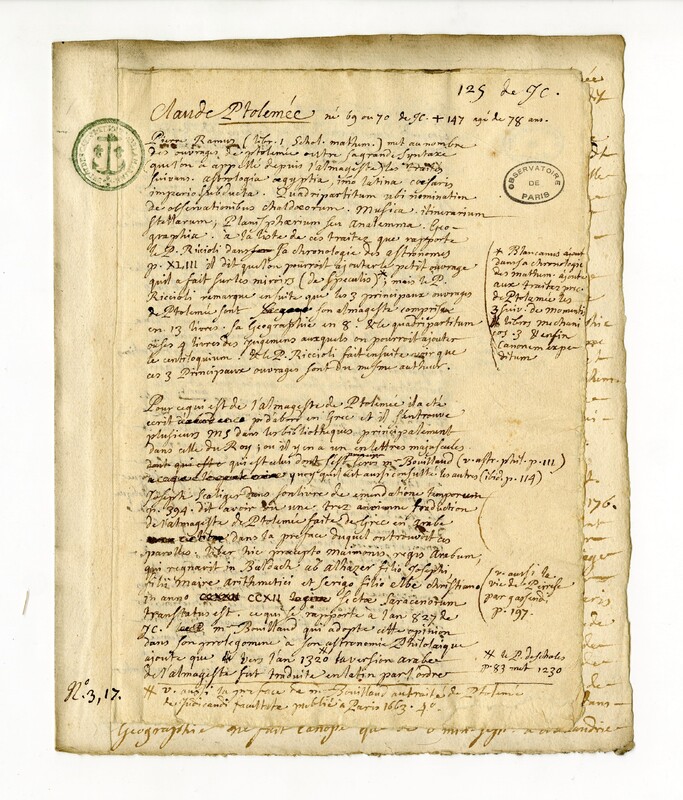 125 de JC.
Claude Ptolemée né 69 ou 70 de JC + 147 agé de 78 ans.
Pierre Ramus (libr. 1. Schol. mathem.) met au nombre
des ouvrages de ptolemée outre sa grande Syntaxe
qu'on a appellé depuis l'almageste les traités
suivans. astrologia ægyptia, imo latina cæsaris
imperio subducta. Quadripartitum ubi nominatim
de observationibus chaldæorum. Musica. itinerarium
stellarum, Planisphærium seu Analemma. Geo-
graphia. a la liste de ces traités que rapporte
le P. Riccioli dans sa chronologie des astronomes
p. XLIII il dit qu'on pourroit ajouter le petit ouvrage
qu'il a fait sur les miroirs (de speculis)*; mais le P.
Riccioli remarque ensuite que les 3 principaux ouvrages
de Ptolemée sont son almageste comprise
en 13 livres. sa Geographie en 8. & le quadripartitum
ou ses 4 livres des jugemens auxquels on pourroit ajouter
le centiloquium. & le P. Riccioli fait ensuite voir que
ces 3 Principaux ouvrages sont du mesme autheur.
* Blancanus ajoute
dans sa chronologie
des mathem. ajoute
aux traités prec.
de Ptolemée les
3 suiv. de
libros mechani
cos. 3 & enfin
Canonem expe-
ditum
Pour ce qui est de l'almageste de Ptolemée il a été
écrit d'abord en Grec et il s'en trouve
plusieurs MS dans les bibliotheques principalement
dans celle du Roy; ou il y en a un en lettres majuscules
qui est celui dont s'est servi m. Bouillaud (v. astr. phil. p. 111)
quoy qu'il ait aussi consulté les autres (ibid. p. 114)
Joseph Scaliger dans son livre de emendatione temporum
p. 394. dit avoir vu une trez ancienne traduction
de l'almageste de Ptolemée faite de Grec en Arabe
dans la preface duquel on trouvoit ces
paroles: liber hic præcepto maimonis regis Arabum,
qui regnavit in Baldach ab alhazer filio Josephi,
filii Maire Arithmetici et Serigo filio Elbe christiano
in anno CCXII Sectæ Saracenorum
translatus est. ce qui se rapporte à l'an 827 de
JC. m. Bouillaud qui adopte cette opinion
dans son prolegomene à son astronomie Philolaique
ajoute que vers l'an 1320 la version arabe
de l'almageste fut traduite en latin par ordre
(v. aussi la
vie de
par gassendi
p. 197.
# le P. deschales
p. 83 met 1230
# v. aussi la preface de m. Bouillaud au traité de Ptolemée
de judicandi facultate publié a Paris 1663. 4o.
No. 3, 17.
Geographie
OBSERVATOIRE
DE
PARIS
176.